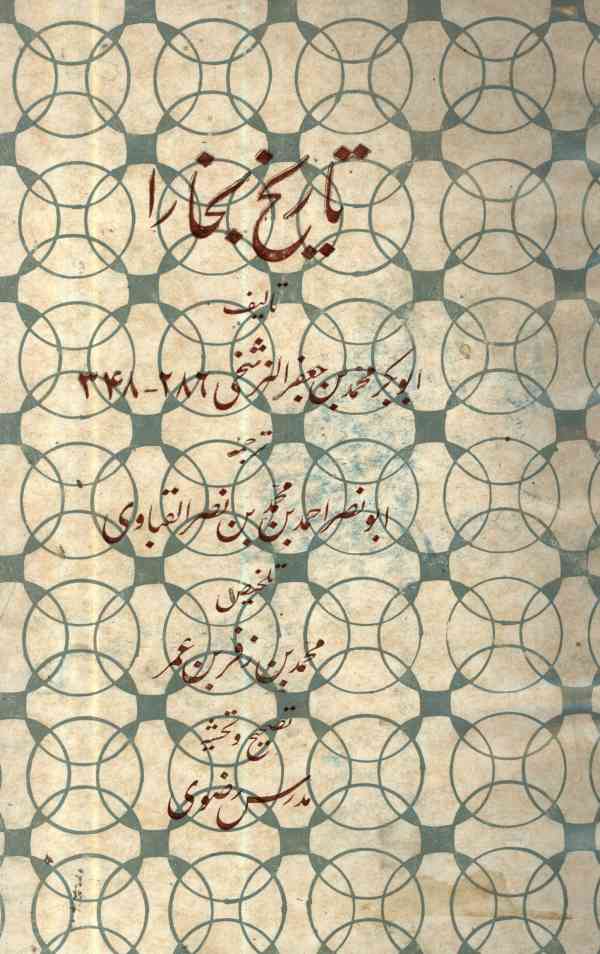 تاریخ بخارا
تالیف
ابوبکر محمد بن جعفر النرشخی ۲۸۶-۳۴۸
ترجمه
ابونصر احمد بن محمد بن نصر القباوی
تلخیص
محمد بن زفر بن عمر
تصحیح و تحشیه
مدرس رضوی